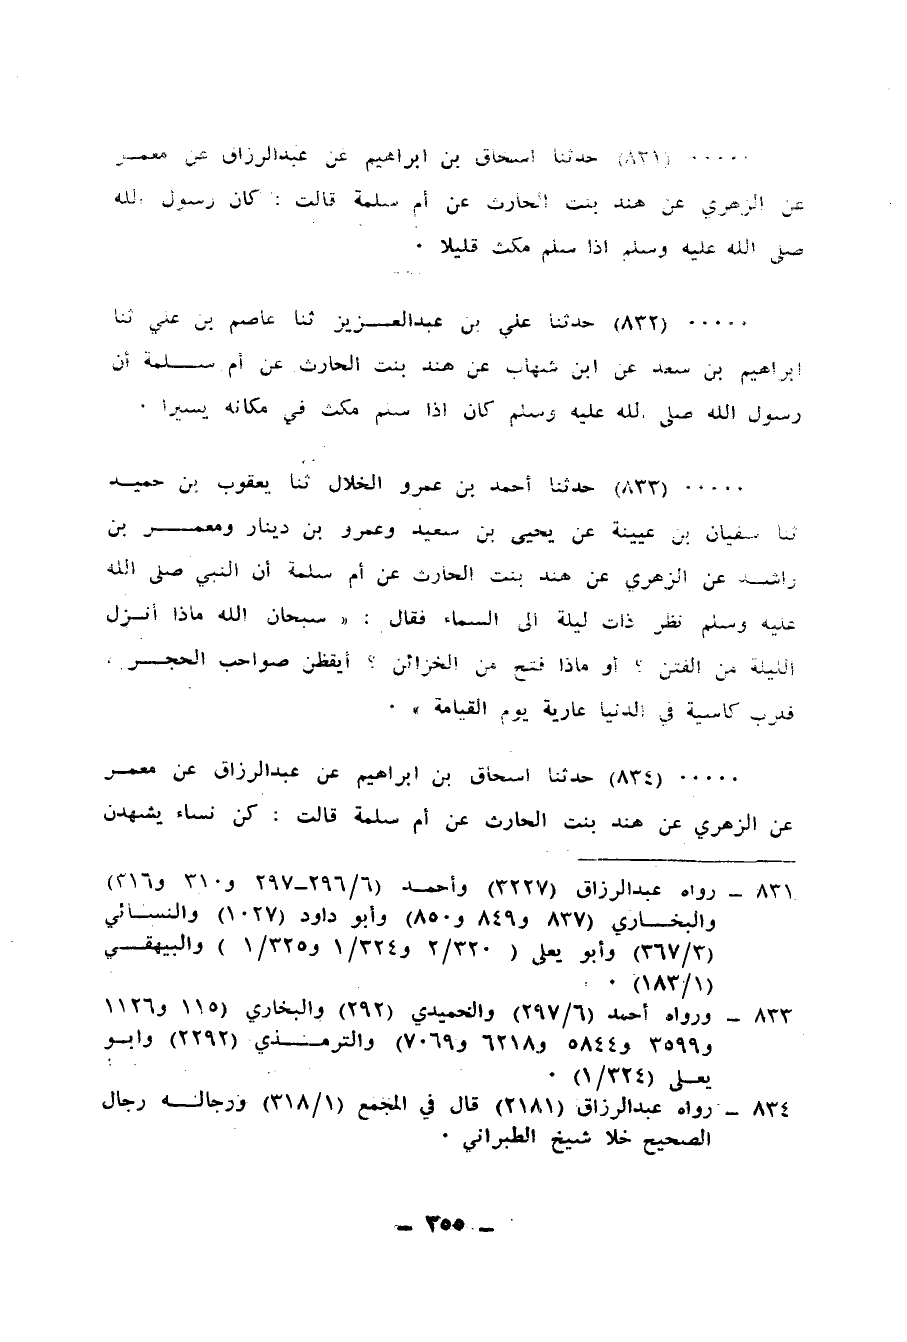 ٠٠٠٠٠ (٨٣١) حدثنا اسحاق بن ابراهيم عن عبدالرزاق عن معمر
عن الزهري عن هند بنت الحارث عن أم سلمة قالت : كان رسول الله
صلى الله عليه وسلم اذا سلم مكث قليلا ٠
٠٠٠٠٠ (٨٣٢) حدثنا علي بن عبدالعزيز ثنا عاصم بن علي ثنا
ابراهيم بن سعد عن ابن شهاب عن هند بنت الحارث عن أم سلمة أن
رسول الله صلى الله عليه وسلم كان اذا سلم مكث في مكانه يسيرا ٠
٠٠٠٠٠ (٨٣٣) حدثنا أحمد بن عمرو الخلال ثنا يعقوب بن حميد
ثنا سفيان بن عيينة عن يحيى بن سعيد وعمرو بن دينار ومعمر بن
راشد عن الزهري عن هند بنت الحارث عن أم سلمة أن النبي صلى الله
عليه وسلم نظر ذات ليلة الى السماء فقال : « سبحان الله ماذا أنزل
الليلة من الفتن ؟ أو ماذا فتح من الخزائن ؟ أيقظن صواحب الحجر ،
فدرب كاسية في الدنيا عارية يوم القيامة » ٠
٠٠٠٠٠ (٨٣٤) حدثنا اسحاق بن ابراهيم عن عبدالرزاق عن معمر
عن الزهري عن هند بنت الحارث عن أم سلمة قالت : كن نساء يشهدن
٨٣١ – رواه عبدالرزاق (٣٢٢٧) وأحمد (٢٩٦/٦–٢٩٧ و٣١٠ و٣١٦)
والبخاري (٨٣٧ و٨٤٩ و٨٥٠) وأبو داود (١٠٢٧) والنسائي
(٣٦٧/٣) وأبو يعلى ( ٢/٣٢٠ و١/٣٢٤ و١/٣٢٥ ) والبيهقي
(١٨٣/١) ٠
٨٣٣ – ورواه أحمد (٢٩٧/٦) والحميدي (٢٩٢) والبخاري (١١٥ و١١٢٦
و٣٥٩٩ و٥٨٤٤ و٦٢١٨ و٧٠٦٩) والترمذي (٢٢٩٢) وابو
يعلى (١/٣٢٤) ٠
٨٣٤ – رواه عبدالرزاق (٢١٨١) قال في المجمع (٣١٨/١) ورجاله رجال
الصحيح خلا شيخ الطبراني ٠
– ٣٥٥ –